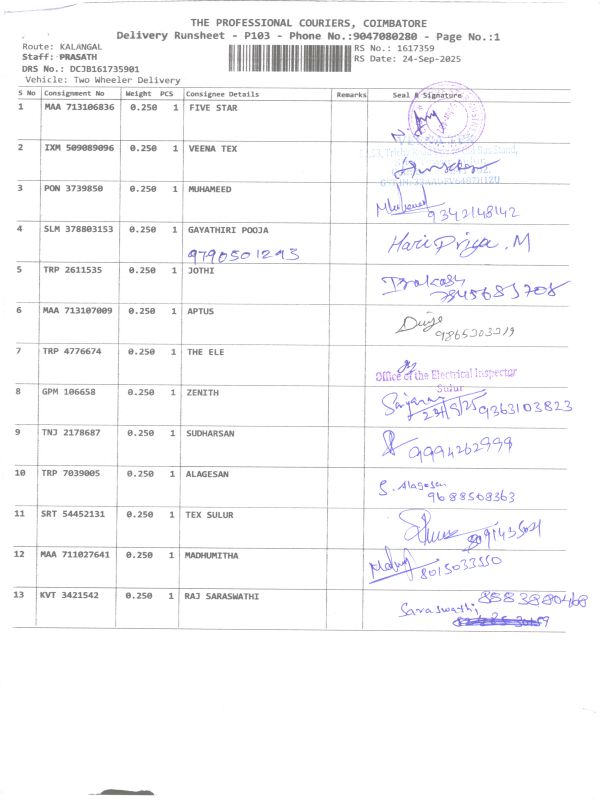 THE PROFESSIONAL COURIERS, COIMBATORE
Delivery Runsheet - P103 - Phone No.:9047080280 - Page No.:1
Route: KALANGAL
RS No.: 1617359
Staff: PRASATH
RS Date: 24-Sep-2025
DRS No.: DCJB161735901
Vehicle: Two Wheeler Delivery
S No Consignment No Weight PCS Consignee Details Remarks Seal & Signature
1 MAA 713106836 0.250 1 FIVE STAR
2 IXM 509089096 0.250 1 VEENA TEX
3 PON 3739850 0.250 1 MUHAMEED
9342148142
4 SLM 378803153 0.250 1 GAYATHIRI POOJA
9790501293 Hari Priya. M
5 TRP 2611535 0.250 1 JOTHI
6 MAA 713107009 0.250 1 APTUS
7 TRP 4776674 0.250 1 THE ELE
Office of the Electrical Inspector
Sulur
8 GPM 106658 0.250 1 ZENITH
9363103823
9 TNJ 2178687 0.250 1 SUDHARSAN
9994262999
10 TRP 7039005 0.250 1 ALAGESAN
S. Alagesan
9688508363
11 SRT 54452131 0.250 1 TEX SULUR
12 MAA 711027641 0.250 1 MADHUMITHA
8015033550
13 KVT 3421542 0.250 1 RAJ SARASWATHI
Saraswathi